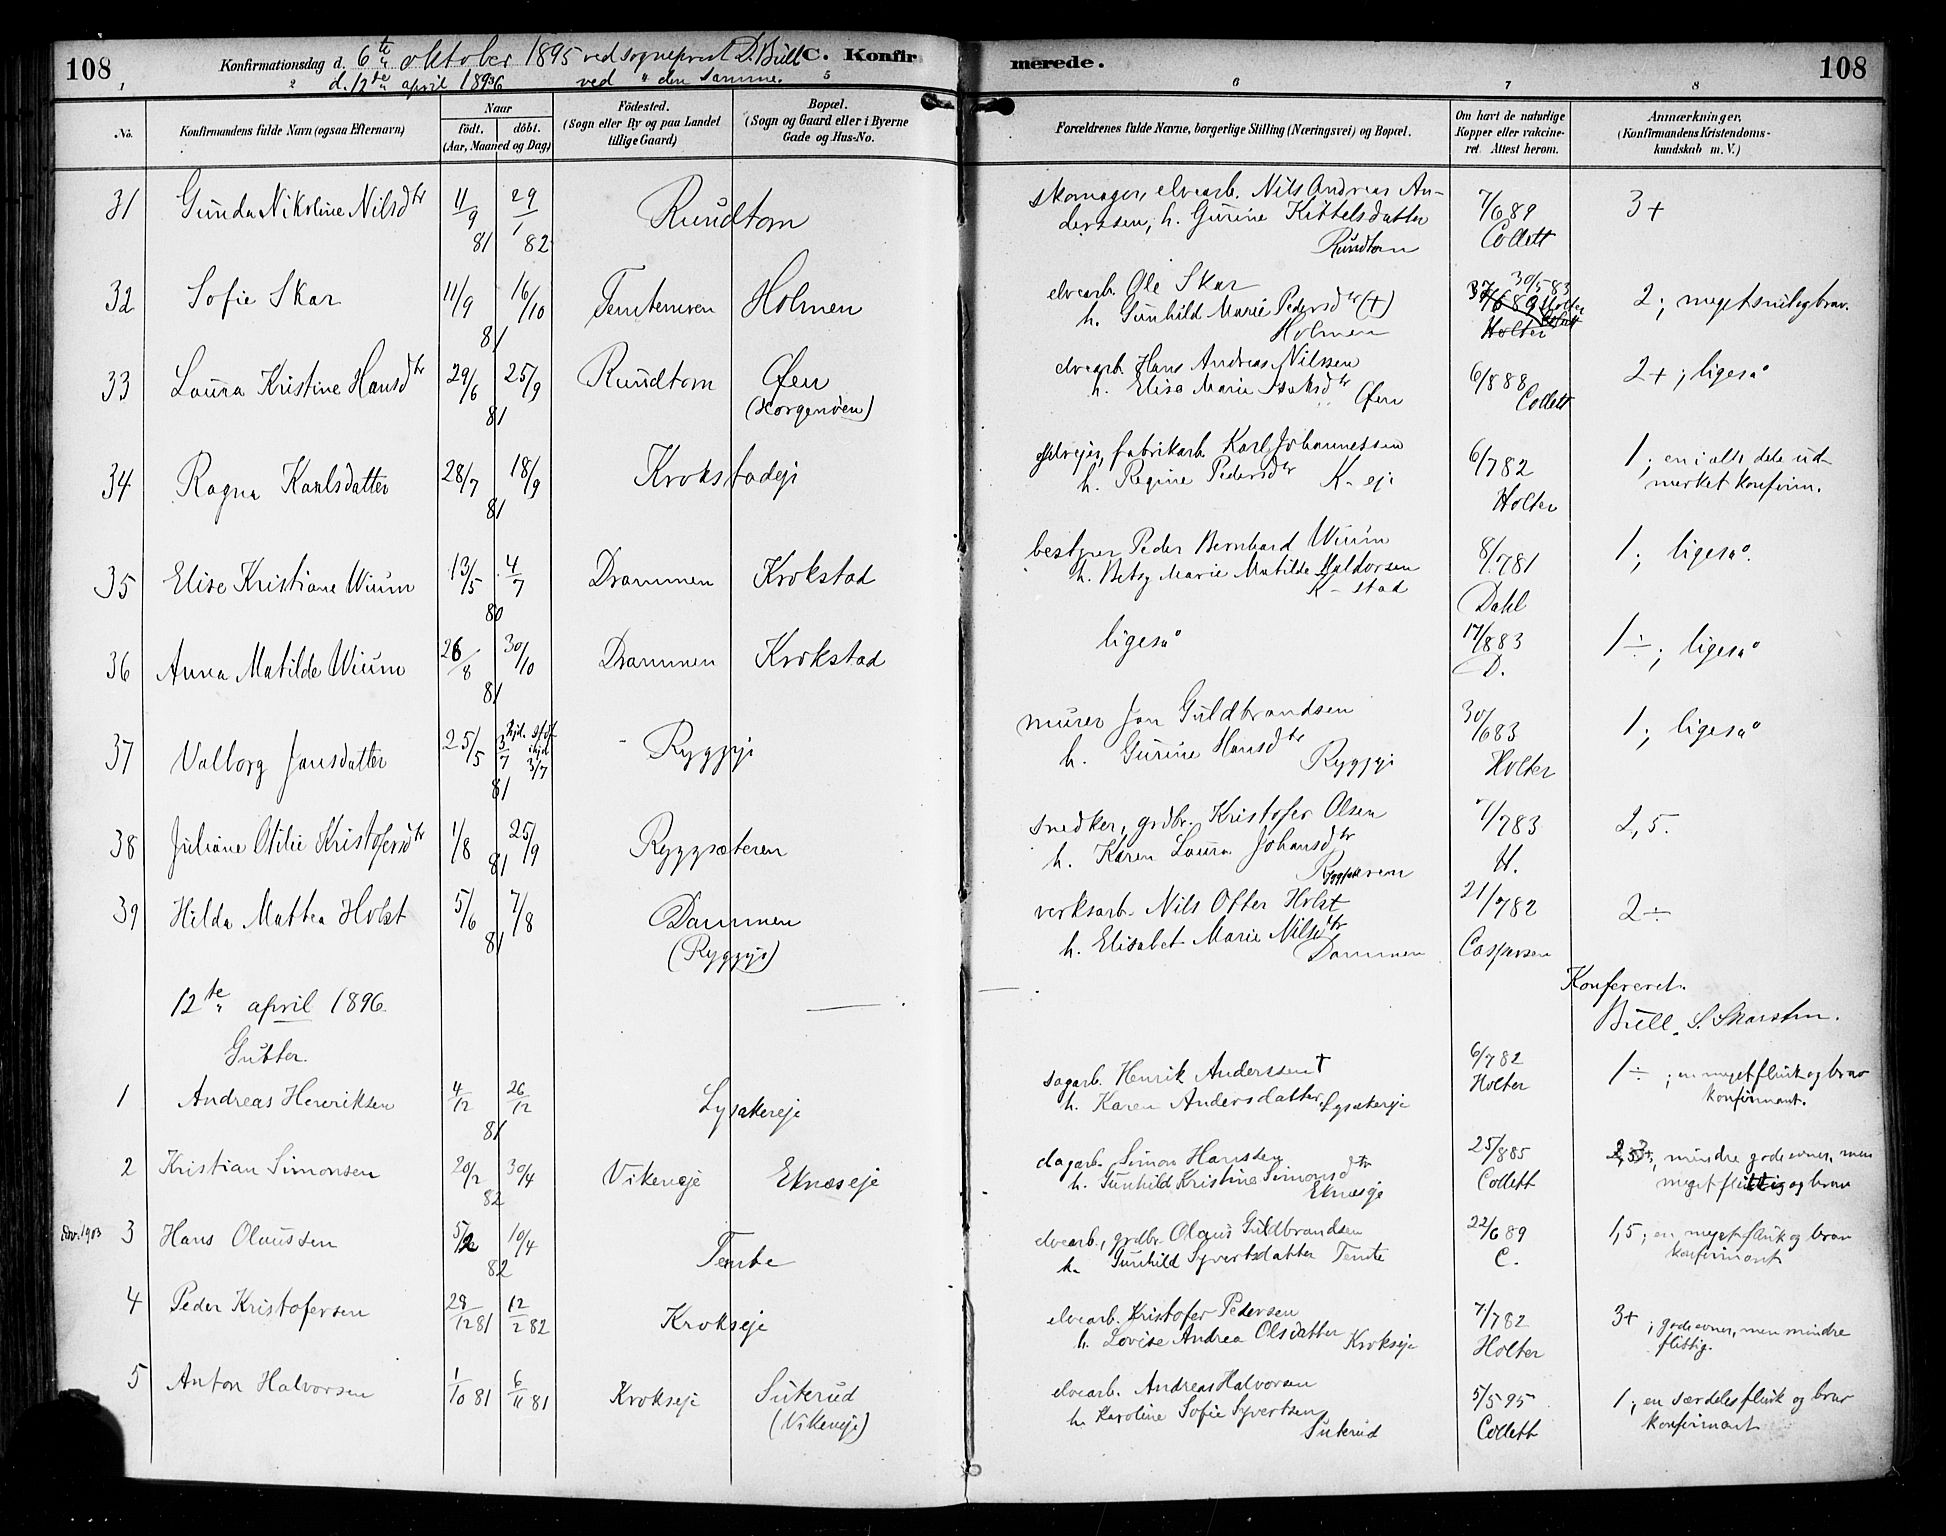 108
Konfirmationsdag d. 6te oktober 1895 ved sogneprest D. Bull
C. Konfirmerede.
108
d. 12te april 1896 ved " den samme.
1 2 5 6 7 8
No.
Konfirmandens fulde Navn (ogsaa Efternavn)
Naar
født. døbt.
(Aar, Maaned og Dag)
Fødested.
(Sogn eller By og paa Landet
tillige Gaard)
Bopæl.
(Sogn og Gaard eller i Byerne
Gade og Hus-No.
Forældrenes fulde Navne, borgerlige Stilling (Næringsvei) og Bopæl.
Om havt de naturlige
Kopper eller vakcine-
ret. Attest herom.
Anmærkninger,
(Konfirmandens Kristendoms-
kundskab m. V.)
31 Gunda Nikoline Nilsdtr 11/9 81 29/1 82 Rundtom
skomager, elvearb. Nils Andreas An-
derssen, h. Gurine Kittelsdatter
Rundtom
7/6 89 Collett
3+
32 Sofie Skar 11/9 16/10 81 Temtemren Holmen
elvearb. Ole Skar
h. Gunhild Marie Pedersdtr (+)
Holmen
30/5 83 Holter
2; meget snil og brav.
33 Laura Kristine Hansdtr 29/6 25/9 81 Rundtom Øen
(Horgenøen)
elvearb. Hans Andreas Nilssen
h. Elise Marie Isaksdtr Øen
6/8 88 Collett
2+; ligeså
34 Ragna Karlsdatter 28/7 18/9 81 Krokstadejr
fabrikarb. Karl Johannessen
h. Regine Pedersdtr K-eje
6/7 82 Holter
1; en i alle dele ud-
merket konfirm.
35 Elise Kristiane Wium 13/5 4/7 80 Drammen Krokstad
bestyrer Peder Bernhard Wium
h. Betsy Marie Matilde Haldorsen
K-stad
8/7 81 Dahl
1; ligeså.
36 Anna Matilde Wium 26/8 30/10 81 Drammen Krokstad
ligeså
17/8 83 D.
1÷; ligeså
37 Valborg Jansdatter 25/5 3/7 hjd. stdf. i kjd 3/7 81 Ryggeje
murer Jan Guldbrandsen
h. Gurine Hansdtr Ryggeje
30/6 83 Holter
1; ligeså
38 Juliane Otilie Kristofersdtr 1/8 25/9 81 Ryggsæteren
snedker, grdbr. Kristofer Olsen
h. Karen Laura Johansdtr
7/7 83 H.
2,5.
39 Hilda Mattea Holst 5/6 7/8 81 Dammen
(Ryggeje)
verksarb. Nils Otter Holst
h. Elisabet Marie Nilsdtr
Dammen
21/7 82 Caspersen
2÷
12te april 1896.
Konfereret.
Bull. S. Skarsten.
Gutter.
1 Andreas Henriksen 4/12 26/12 81 Lysakereje
sagarb. Henrik Anderssen †
h. Karen Andersdatter, Lysakereje
6/7 82 Holter
1÷; en meget flink og brav
konfirmant.
2 Kristian Simonsen 20/2 30/4 82 Vikeneje Eknæseje
dagarb. Simon Hanssen
h. Gunhild Kristine Simonsdtr
Eknæseje
25/8 85 Collett
mindre gode evner, men
meget flittig og brav
1903
3 Hans Olaussen 5/2 10/4 82 Temte
elvearb., grdbr. Olaus Guldbrandsen
h. Gunhild Syvertsdatter Temte
22/6 89 C.
1,5; en meget flink og brav
konfirmant
4 Peder Kristofersen 29/12 81 12/2 82 Krokseje
elvearb. Kristofer Pedersen
h. Lovise Andrea Olsdatter Krokseje
7/7 82 Holter
3+; gode evner, men mindre
flittig.
5 Anton Halvorsen 1/10 81 6/11 81 Krokseje Suterud
(Vikeneje)
elvearb. Andreas Halvorsen
h. Karoline Sofie Syvertsen
Suterud
5/5 95 Collett
1; en særdeles flink og brav
konfirmant